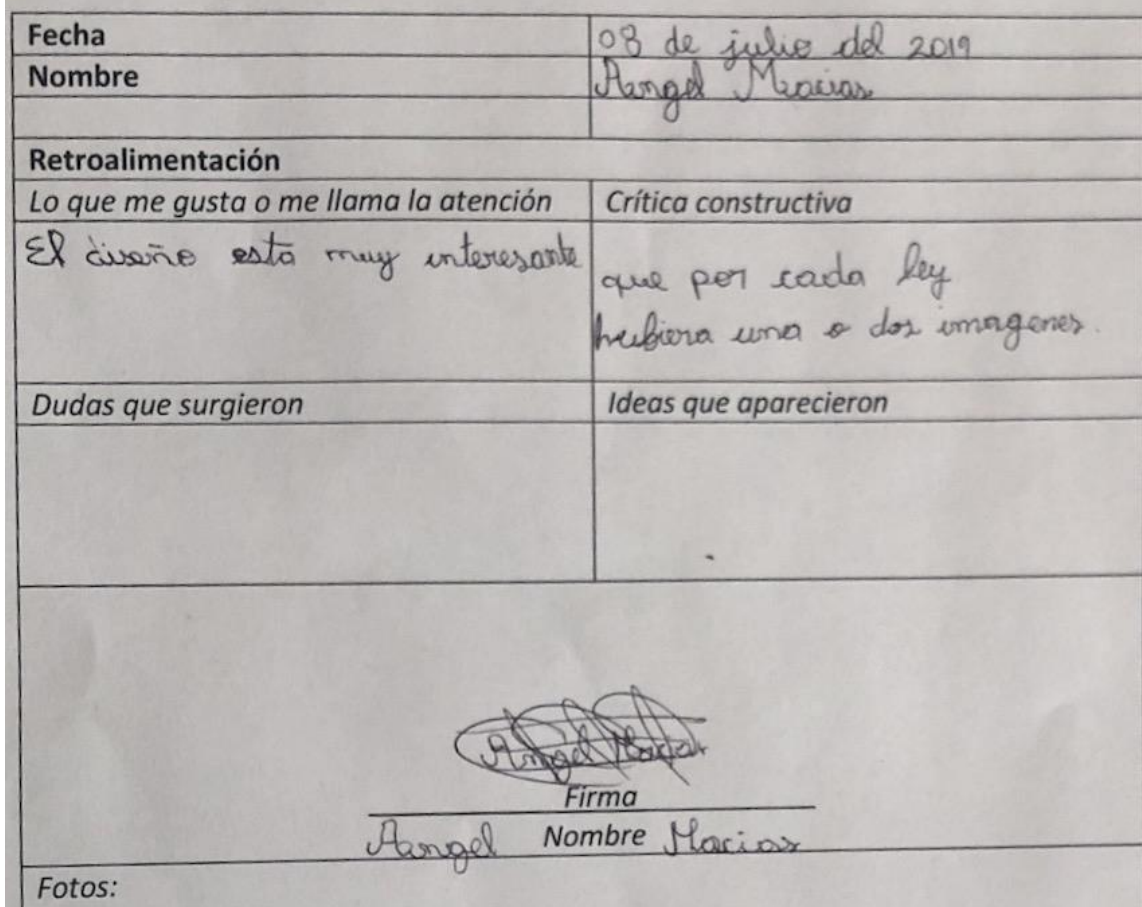 Fecha 08 de julio del 2019
Nombre Aangel Macias
Retroalimentación
Lo que me gusta o me llama la atención Crítica constructiva
El diseño esta muy interesante
que por cada ley
hubiera una o dos imagenes.
Dudas que surgieron Ideas que aparecieron
Angel Macias
Firma
Aangel Nombre Macias
Fotos: